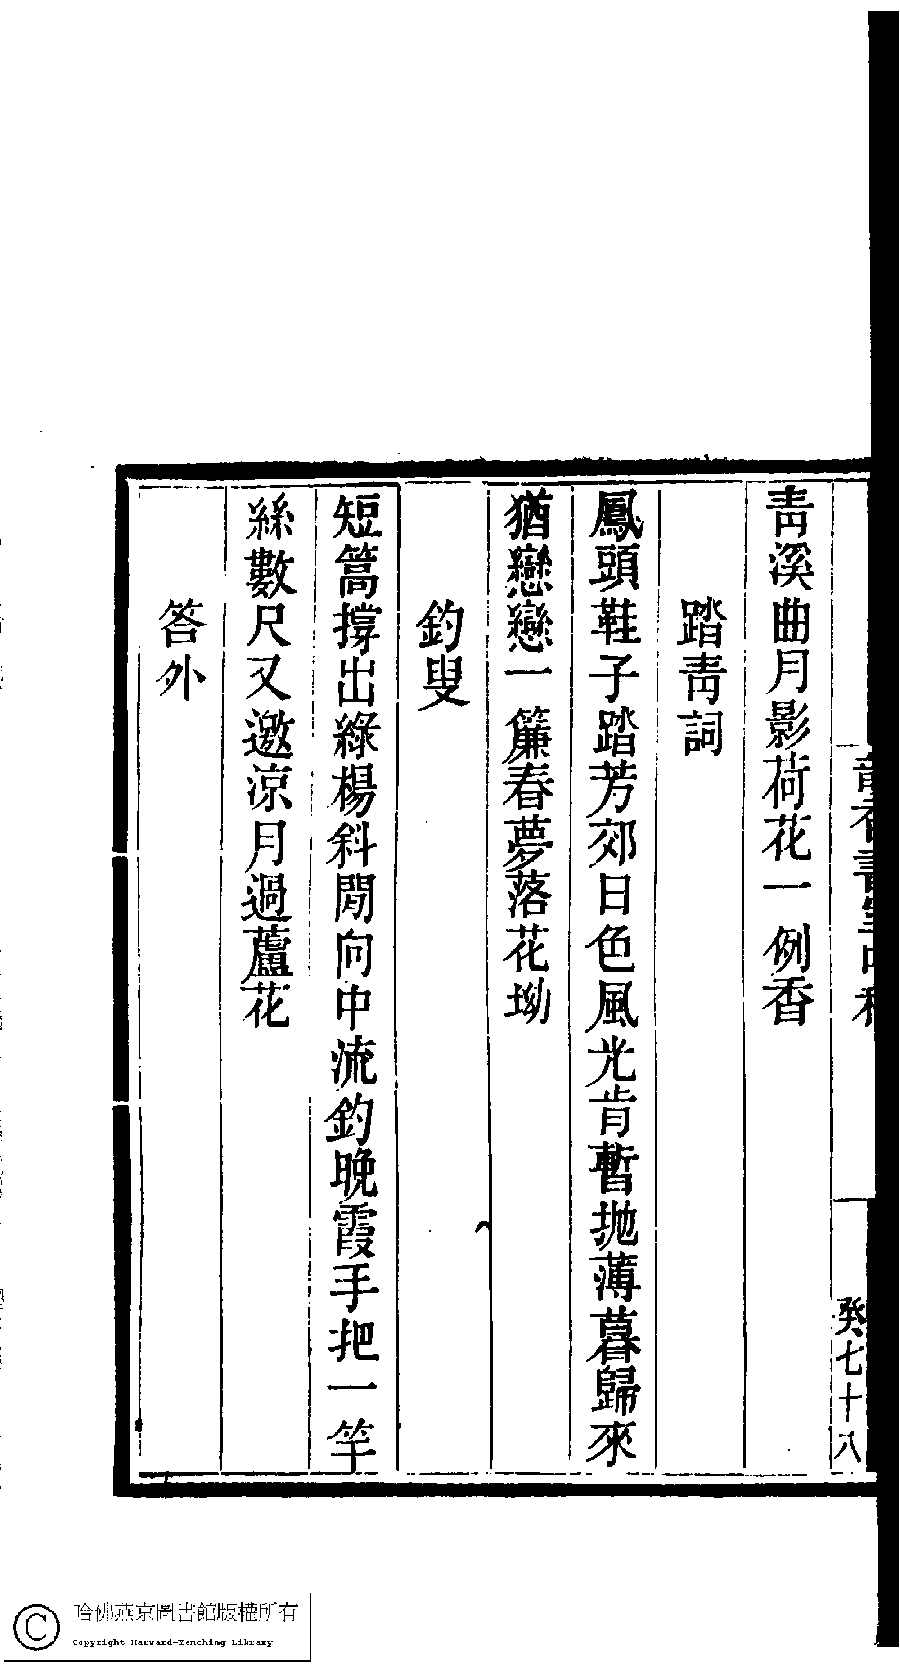 靑溪曲月影荷花一例香
踏靑詞
鳳頭鞋子踏芳郊日色風光肯暫拋薄暮歸來
猶戀戀一簾春夢落花坳
釣叟
短篙撐出綠楊斜閒向中流釣晚霞手把一竿
絲數尺又邀涼月過蘆花
答外
癸七十八
哈佛燕京圖書館版權所有
Copyright Harvard-Yenching Library